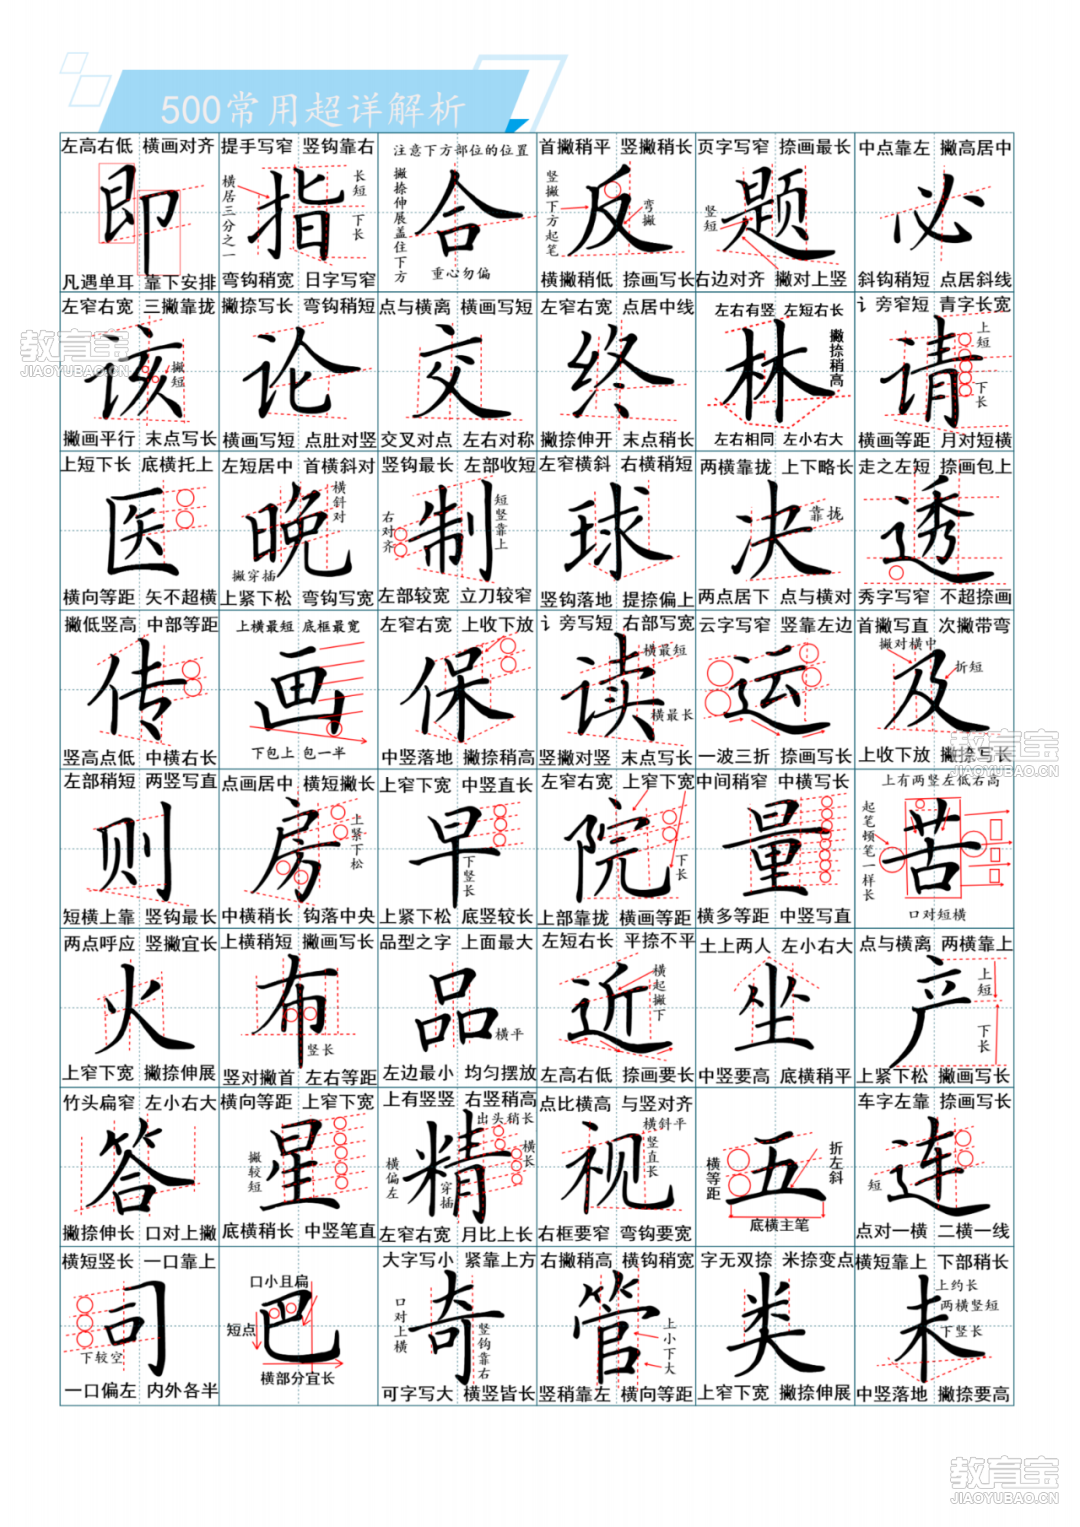 500常用超详解析
左高右低 横画对齐
即
凡遇单耳 靠下安排
提手写窄 竖钩靠右
横居三分之一
指
长短
下长
弯钩稍宽 日字写窄
注意下方部位的位置
撇捺伸展盖住下方
合
重心勿偏
首撇稍平 竖撇稍长
竖撇下方起笔
反
弯撇
横撇稍低 捺画写长
页字写窄 捺画最长
竖短
题
右边对齐 撇对上竖
中点靠左 撇高居中
必
斜钩稍短 点居斜线
左窄右宽 三撇靠拢
该
撇短
撇画平行 末点写长
撇捺写长 弯钩稍短
论
横画写短 点肚对竖
点与横离 横画写短
交
交叉对点 左右对称
左窄右宽 点居中线
终
撇捺伸开 末点稍长
左右有竖 左短右长
林
撇捺稍高
左右相同 左小右大
讠旁窄短 青字长宽
请
上短
下长
横画等距 月对短横
上短下长 底横托上
医
横向等距 矢不超横
左短居中 首横斜对
晚
横斜对
撇穿插
上紧下松 弯钩写宽
竖钩最长 左部收短
右对齐
制
短竖靠上
左部较宽 立刀较窄
左窄横斜 右横稍短
球
竖钩落地 提捺偏上
两横靠拢 上下略长
决
靠拢
两点居下 点与横对
走之左短 捺画包上
透
秀字写窄 不超捺画
撇低竖高 中部等距
传
竖高点低 中横右长
上横最短 底框最宽
画
下包上 包一半
左窄右宽 上收下放
保
中竖落地 撇捺稍高
讠旁写短 右部写宽
读
横最短
横最长
竖撇对竖 末点写长
云字写窄 竖靠左边
运
一波三折 捺画写长
首撇写直 次撇带弯
撇对横中
折短
及
上收下放 撇捺写长
左部稍短 两竖写直
则
短横上靠 竖钩最长
点画居中 横短撇长
房
上紧下松
中横稍长 钩落中央
上窄下宽 中竖直长
早
下竖长
上紧下松 底竖较长
左窄右宽 上窄下宽
院
下长
上部靠拢 横画等距
中间稍窄 中横写长
量
横多等距 中竖写直
上有两竖左低右高
起笔顿笔一样长
苦
口对短横
两点呼应 竖撇宜长
火
上窄下宽 撇捺伸展
上横稍短 撇画写长
布
竖长
竖对撇首 左右等距
品型之字 上面最大
品
横平
左边最小 均匀摆放
左短右长 平捺不平
近
横起撇下
左高右低 捺画要长
土上两人 左小右大
坐
中竖要高 底横稍平
点与横离 两横靠上
产
上短
下长
上紧下松 撇画写长
竹头扁窄 左小右大
答
撇捺伸长 口对上撇
横向等距 上窄下宽
撇较短
星
底横稍长 中竖笔直
上有竖竖 右竖稍高
出头稍长
横偏左
精
横长
穿插
左窄右宽 月比上长
点比横高 与竖对齐
横斜平
视
竖直长
右框要窄 弯钩要宽
横等距
五
折左斜
底横主笔
车字左靠 捺画写长
连
短
点对一横 二横一线
横短竖长 一口靠上
司
下较空
一口偏左 内外各半
口小且扁
短点
巴
横部分宜长
大字写小 紧靠上方
口对上横
奇
竖钩靠右
可字写大 横竖皆长
右撇稍高 横钩稍宽
管
上小下大
竖稍靠左 横向等距
字无双捺 米捺变点
类
上窄下宽 撇捺伸展
横短靠上 下部稍长
上约长
两横竖短
未
下竖长
中竖落地 撇捺要高
教育宝
JIAOYUBAO.CN
教育宝
JIAOYUBAO.CN
教育宝
JIAOYUBAO.CN